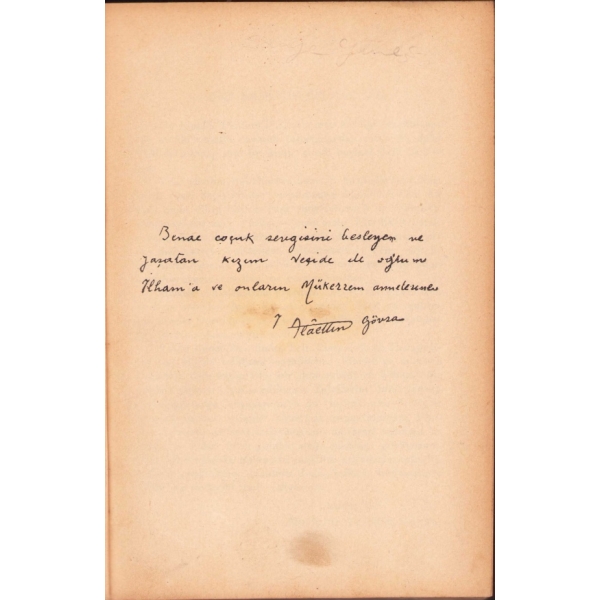 Bende çocuk sevgisini besleyen ve
yaşatan kızım Veçide ile oğlum
İlham'a ve onların Mükerrem annelerine
İ Alâettin Gövsa